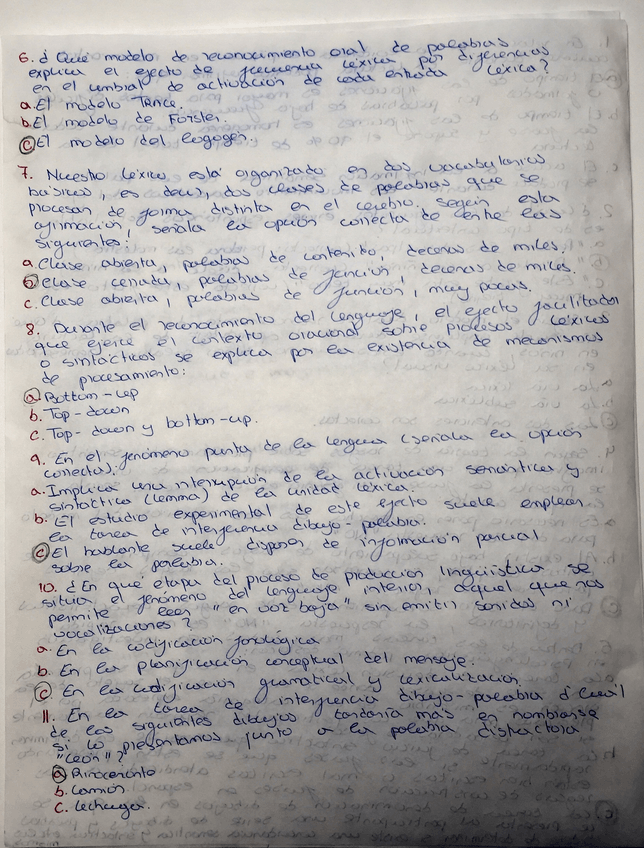 6. ¿Qué modelo de reconocimiento oral de palabras
explica el efecto de frecuencia léxica por diferencias
en el umbral de activación de cada entrada léxica?
a. El modelo Trace.
b. El modelo de Forster.
c. El modelo del logogen.
7. Nuestro léxico está organizado en dos vocabularios
básicos, es decir, dos clases de palabras que se
procesan de forma distinta en el cerebro. Según esta
afirmación, señala la opción correcta de entre las
siguientes:
a. Clase abierta, palabras de contenido, decenas de miles.
b. Clase cerrada, palabras de función, decenas de miles.
c. Clase abierta, palabras de función, muy pocas.
8. Durante el reconocimiento del lenguaje, el efecto facilitador
que ejerce el contexto oracional sobre procesos léxicos
o sintácticos se explica por la existencia de mecanismos
de procesamiento:
a. Bottom-up
b. Top-down
c. Top-down y bottom-up.
9. En el fenómeno punta de la lengua (señala la opción
correcta):
a. Implica una interrupción de la activación semántica y
sintáctica (lemma) de la unidad léxica.
b. El estudio experimental de este efecto suele emplear
la tarea de interferencia dibujo-palabra.
c. El hablante suele disponer de información parcial
sobre la palabra.
10. ¿En qué etapa del proceso de producción lingüística se
situa el fenómeno del lenguaje interior, aquel que nos
permite leer "en voz baja" sin emitir sonidos ni
vocalizaciones?
a. En la codificación fonológica
b. En la planificación conceptual del mensaje.
c. En la codificación gramatical y lexicalización
11. En la tarea de interferencia dibujo-palabra ¿Cuál
de los siguientes dibujos tardaría más en nombrarse
si lo presentamos junto a la palabra distractora
"León"?
a. Rinoceronte
b. Camión
c. Lechuga.